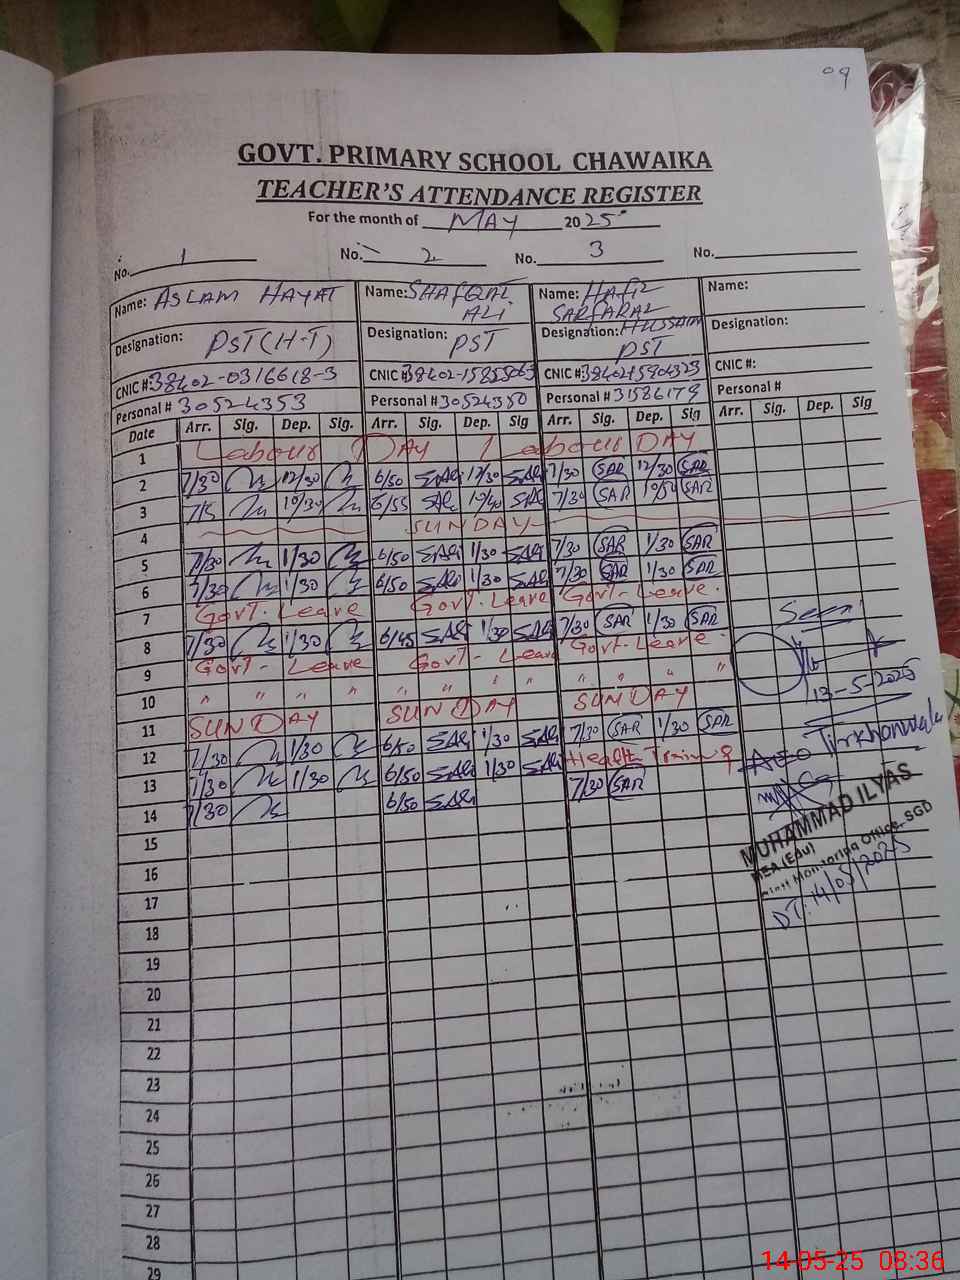 09
GOVT. PRIMARY SCHOOL CHAWAIKA
TEACHER'S ATTENDANCE REGISTER
For the month of MAY 2025
No. 1 No. 2 No. 3 No.
Name: ASLAM HAYAT Name: SHAFQAT ALI Name: HAFIZ SARFARAZ HUSSAIN Name:
Designation: PST (H-T) Designation: PST Designation: PST Designation:
CNIC #: 38402-0316618-3 CNIC # CNIC #: CNIC #:
Personal # 30524353 Personal # 30524350 Personal # 31586179 Personal #
Date Arr. Sig. Dep. Sig. Arr. Sig. Dep. Sig Arr. Sig. Dep. Sig Arr. Sig. Dep. Sig
1 Labour DAY Labour DAY
2 7/30 12/30 6/50 SAli 12/30 SAli 7/30 SAR 12/30 SAR
3 10/30 6/55 SAli 10/40 SAli 7/30 SAR 10/50 SAR
4 SUNDAY
5 7/30 1/30 6/50 SAli 1/30 SAli 7/30 SAR 1/30 SAR
6 7/30 1/30 6/50 SAli 1/30 SAli 7/30 SAR 1/30 SAR
7 Govt. Leave Govt. Leave Govt. Leave
8 7/30 1/30 6/45 SAli 1/30 SAli 7/30 SAR 1/30 SAR
9 Govt - Leave Govt - Leave Govt. Leave
10 " " " " " " " " " " " "
11 SUNDAY SUNDAY SUNDAY
12 7/30 1/30 6/50 SAli 1/30 SAli 7/30 SAR 1/30 SAR
13 7/30 1/30 6/50 SAli 1/30 SAli Health Training
14 7/30 6/50 SAli 7/30 SAR
Seen
13-5-2025
AEO Tirkhanwala
MUHAMMAD ILYAS
MEA (Edu)
Monitoring Office, SGD
DT. 14/05/2025
15
16
17
18
19
20
21
22
23
24
25
26
27
28
29
14-05-25 08:36